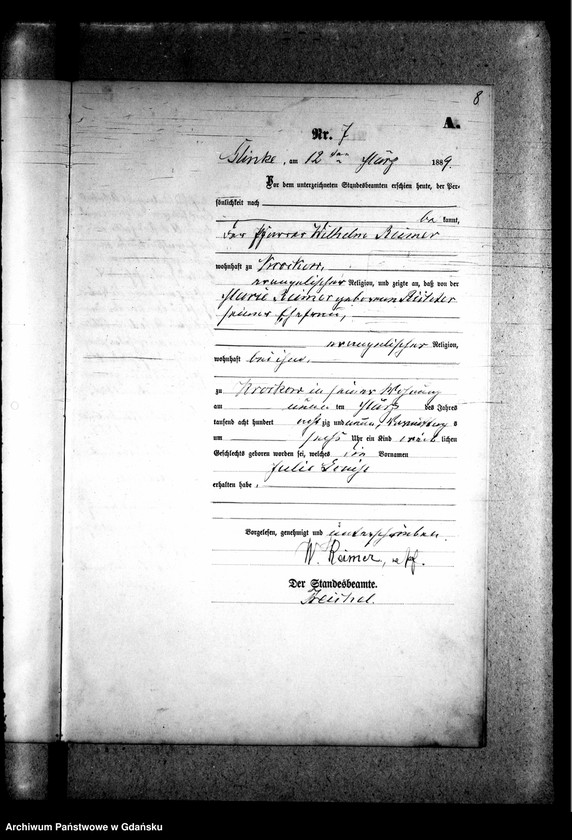 8
A.
Nr. 7
Glinke, am 12 ten März 1889.
Vor dem unterzeichneten Standesbeamten erschien heute, der Per-
sönlichkeit nach
be kannt,
der Pfarrer Wilhelm Reimer
wohnhaft zu Krockow,
evangelischer Religion, und zeigte an, daß von der
Marie Reimer geborenen
seiner Ehefrau,
evangelischer Religion,
wohnhaft bei ihm,
zu Krockow in seiner Wohnung
am neun ten März des Jahres
tausend acht hundert acht zig und neun, Vormittag s
um sechs Uhr ein Kind weib lichen
Geschlechts geboren worden sei, welches die Vornamen
Julie Louise
erhalten habe.
Vorgelesen, genehmigt und unterschrieben.
W. Reimer,
Der Standesbeamte.
Archiwum Państwowe w Gdańsku